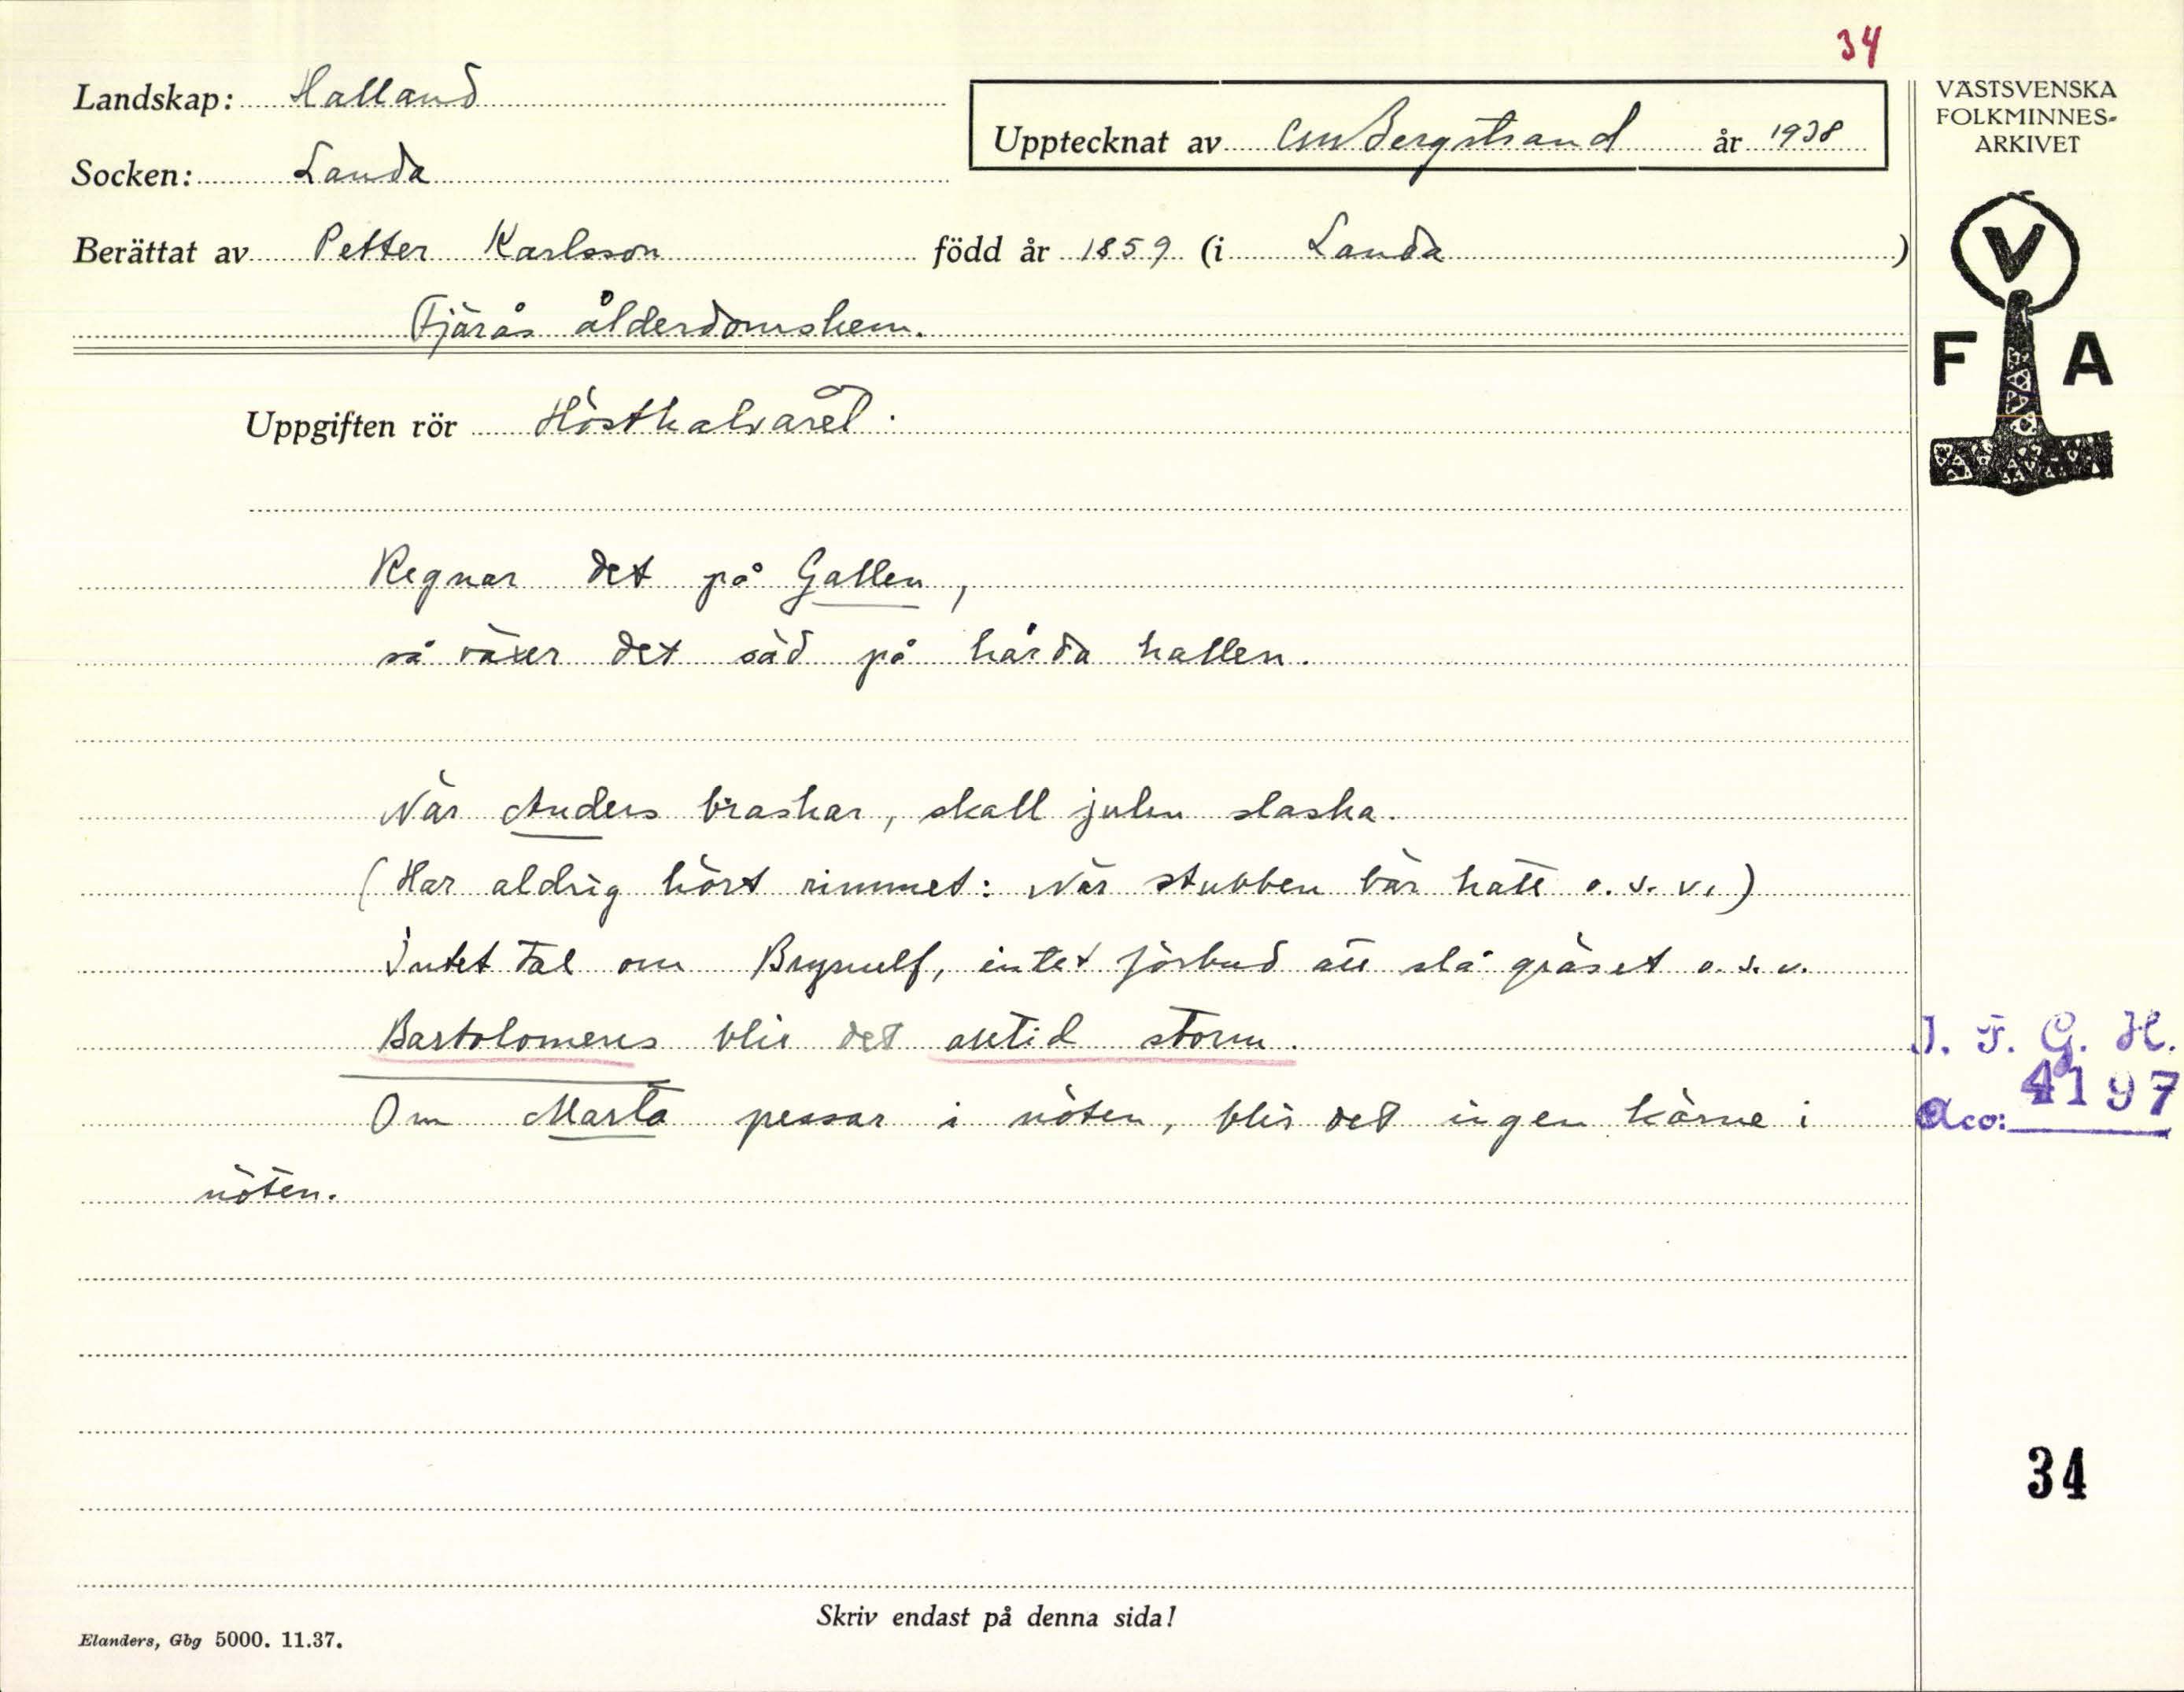 34
Landskap: Halland
Upptecknat av CM Bergstrand år 1938
Socken: Landa
Berättat av Petter Karlsson född år 1859 (i Landa)
Fjärås ålderdomshem.
Uppgiften rör Hösthalvåret.
Regnar det på Gallen,
så växer det säd på hårda hallen.
När Anders braskar, skall julen slaska.
(Har aldrig hört rimmet: När stubben bär hatt o. s. v.)
Intet tal om Brynulf, intet förbud att slå gräset o. s. v.
Bartolomeus blir det alltid storm.
Om Marta pessar i nöten, blir det ingen kärne i
nöten.
Skriv endast på denna sida!
Elanders, Gbg 5000. 11.37.
VÄSTSVENSKA
FOLKMINNES-
ARKIVET
V
F A
I. F. G. H.
Acc: 4197
34